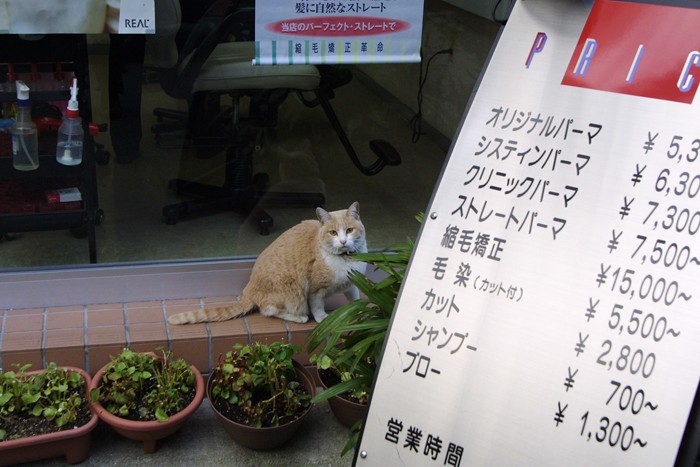 REAL
髪に自然なストレート
当店のパーフェクト・ストレートで
縮毛矯正革命
PRIC
オリジナルパーマ ¥5,3
システィンパーマ ¥6,30
クリニックパーマ ¥7,300
ストレートパーマ ¥7,500~
縮毛矯正 ¥15,000~
毛染(カット付) ¥5,500~
カット ¥2,800
シャンプー ¥700~
ブロー ¥1,300~
営業時間